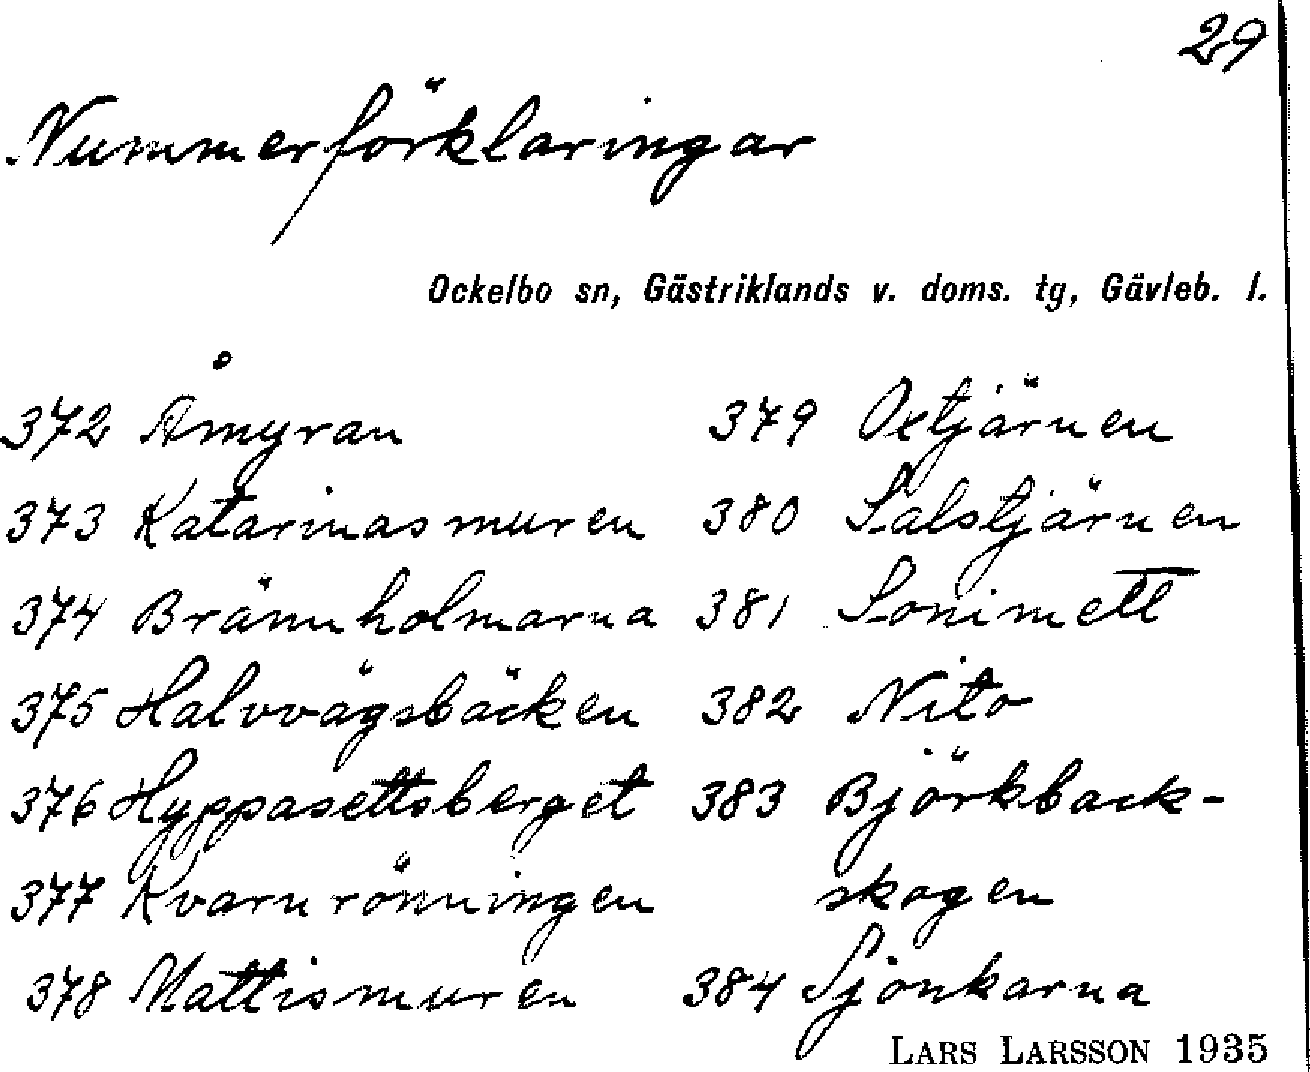 29
Nummerförklaringar
Ockelbo sn, Gästriklands v. doms. tg, Gävleb. l.
372 Åmyran
373 Katarinasmuren
374 Brännholmarna
375 Halvvägsbäcken
376 Hyppasettsberget
377 Kvarnrönningen
378 Mattismuren
379 Oxtjärnen
380 Salstjärnen
381 Sonimett
382 Nito
383 Björkback-
skogen
384 Sjonkarna
LARS LARSSON 1935